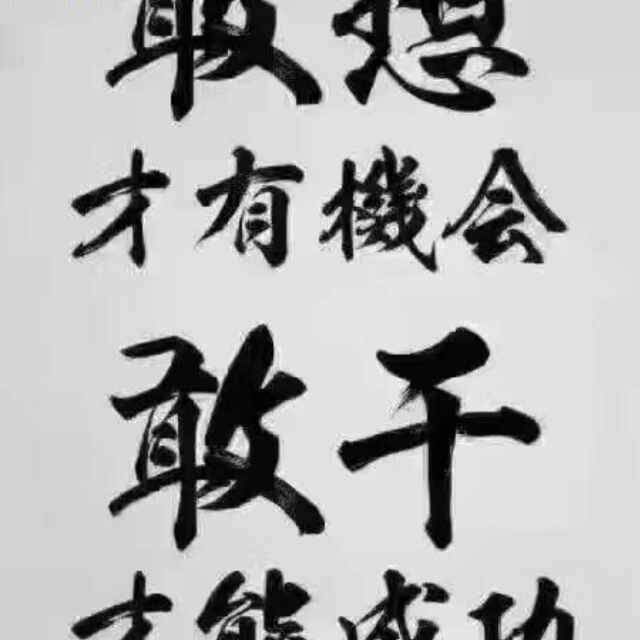 敢想
才有機会
敢干
才能成功